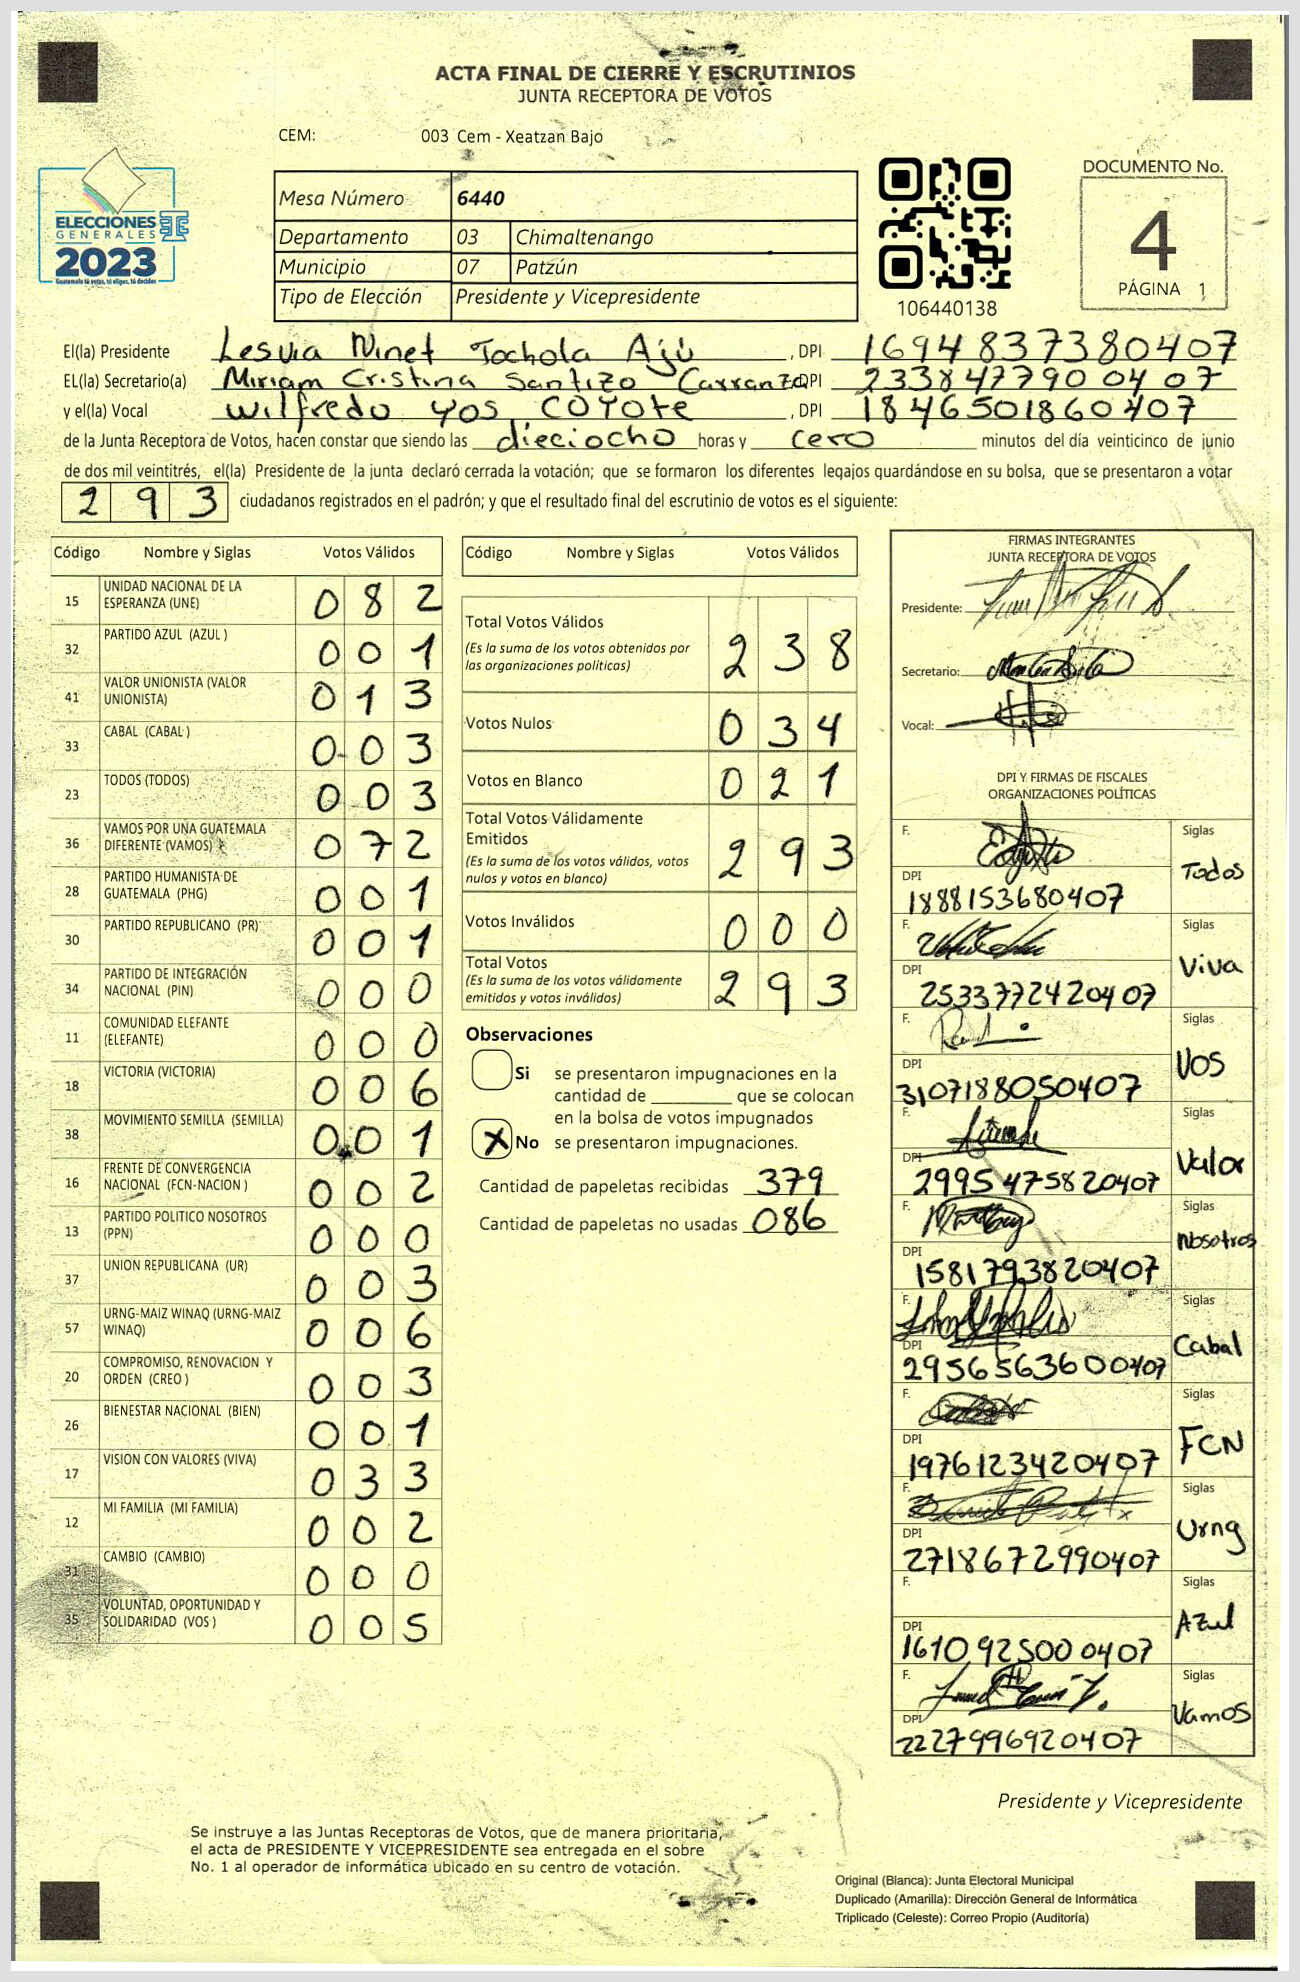 ACTA FINAL DE CIERRE Y ESCRUTINIOS
JUNTA RECEPTORA DE VOTOS
CEM: 003 Cem - Xeatzan Bajo
ELECCIONES
GENERALES
2023
Guatemala tú votas, tú eliges, tú decides
Mesa Número 6440
Departamento 03 Chimaltenango
Municipio 07 Patzún
Tipo de Elección Presidente y Vicepresidente
106440138
DOCUMENTO No.
4
PÁGINA 1
El(la) Presidente Lesvia Ninet Tochola Ajú , DPI 1694837380407
EL(la) Secretario(a) Miriam Cristina Santizo Carranza DPI 2338477900407
y el(la) Vocal Wilfredo Yos COYOTE , DPI 1846501860407
de la Junta Receptora de Votos, hacen constar que siendo las dieciocho horas y cero minutos del día veinticinco de junio
de dos mil veintitrés, el(la) Presidente de la junta declaró cerrada la votación; que se formaron los diferentes legajos guardándose en su bolsa, que se presentaron a votar
293 ciudadanos registrados en el padrón; y que el resultado final del escrutinio de votos es el siguiente:
Código Nombre y Siglas Votos Válidos
15 UNIDAD NACIONAL DE LA ESPERANZA (UNE) 082
32 PARTIDO AZUL (AZUL ) 001
41 VALOR UNIONISTA (VALOR UNIONISTA) 013
33 CABAL (CABAL ) 003
23 TODOS (TODOS) 003
36 VAMOS POR UNA GUATEMALA DIFERENTE (VAMOS) 072
28 PARTIDO HUMANISTA DE GUATEMALA (PHG) 001
30 PARTIDO REPUBLICANO (PR) 001
34 PARTIDO DE INTEGRACIÓN NACIONAL (PIN) 000
11 COMUNIDAD ELEFANTE (ELEFANTE) 000
18 VICTORIA (VICTORIA) 006
38 MOVIMIENTO SEMILLA (SEMILLA) 001
16 FRENTE DE CONVERGENCIA NACIONAL (FCN-NACION ) 002
13 PARTIDO POLITICO NOSOTROS (PPN) 000
37 UNION REPUBLICANA (UR) 003
57 URNG-MAIZ WINAQ (URNG-MAIZ WINAQ) 006
20 COMPROMISO, RENOVACION Y ORDEN (CREO ) 003
26 BIENESTAR NACIONAL (BIEN) 001
17 VISION CON VALORES (VIVA) 033
12 MI FAMILIA (MI FAMILIA) 002
31 CAMBIO (CAMBIO) 000
35 VOLUNTAD, OPORTUNIDAD Y SOLIDARIDAD (VOS ) 005
Código Nombre y Siglas Votos Válidos
Total Votos Válidos
(Es la suma de los votos obtenidos por
las organizaciones políticas) 238
Votos Nulos 034
Votos en Blanco 021
Total Votos Válidamente
Emitidos
(Es la suma de los votos válidos, votos
nulos y votos en blanco) 293
Votos Inválidos 000
Total Votos
(Es la suma de los votos válidamente
emitidos y votos inválidos) 293
Observaciones
Si se presentaron impugnaciones en la
cantidad de ________ que se colocan
en la bolsa de votos impugnados
X No se presentaron impugnaciones.
Cantidad de papeletas recibidas 379
Cantidad de papeletas no usadas 086
FIRMAS INTEGRANTES
JUNTA RECEPTORA DE VOTOS
Presidente:
Secretario:
Vocal:
DPI Y FIRMAS DE FISCALES
ORGANIZACIONES POLÍTICAS
F. Siglas Todos
DPI 1888153680407
F. Siglas Viva
DPI 2533772420407
F. Siglas VOS
DPI 3107188050407
F. Siglas Valor
DPI 2995475820407
F. Siglas Nosotros
DPI 1581793820407
F. Siglas Cabal
DPI 2956563600407
F. Siglas FCN
DPI 1976123420407
F. Siglas Urng
DPI 2718672990407
F. Siglas AZul
DPI 1610925000407
F. Siglas Vamos
DPI 2227996920407
Presidente y Vicepresidente
Se instruye a las Juntas Receptoras de Votos, que de manera prioritaria,
el acta de PRESIDENTE Y VICEPRESIDENTE sea entregada en el sobre
No. 1 al operador de informática ubicado en su centro de votación.
Original (Blanca): Junta Electoral Municipal
Duplicado (Amarilla): Dirección General de Informática
Triplicado (Celeste): Correo Propio (Auditoría)